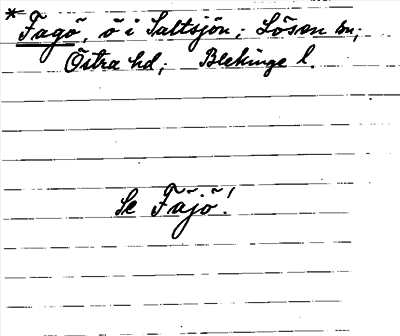 * Fågö, ö i Saltsjön; Lösen sn;
Östra hd; Blekinge l.
Se Fäjö!